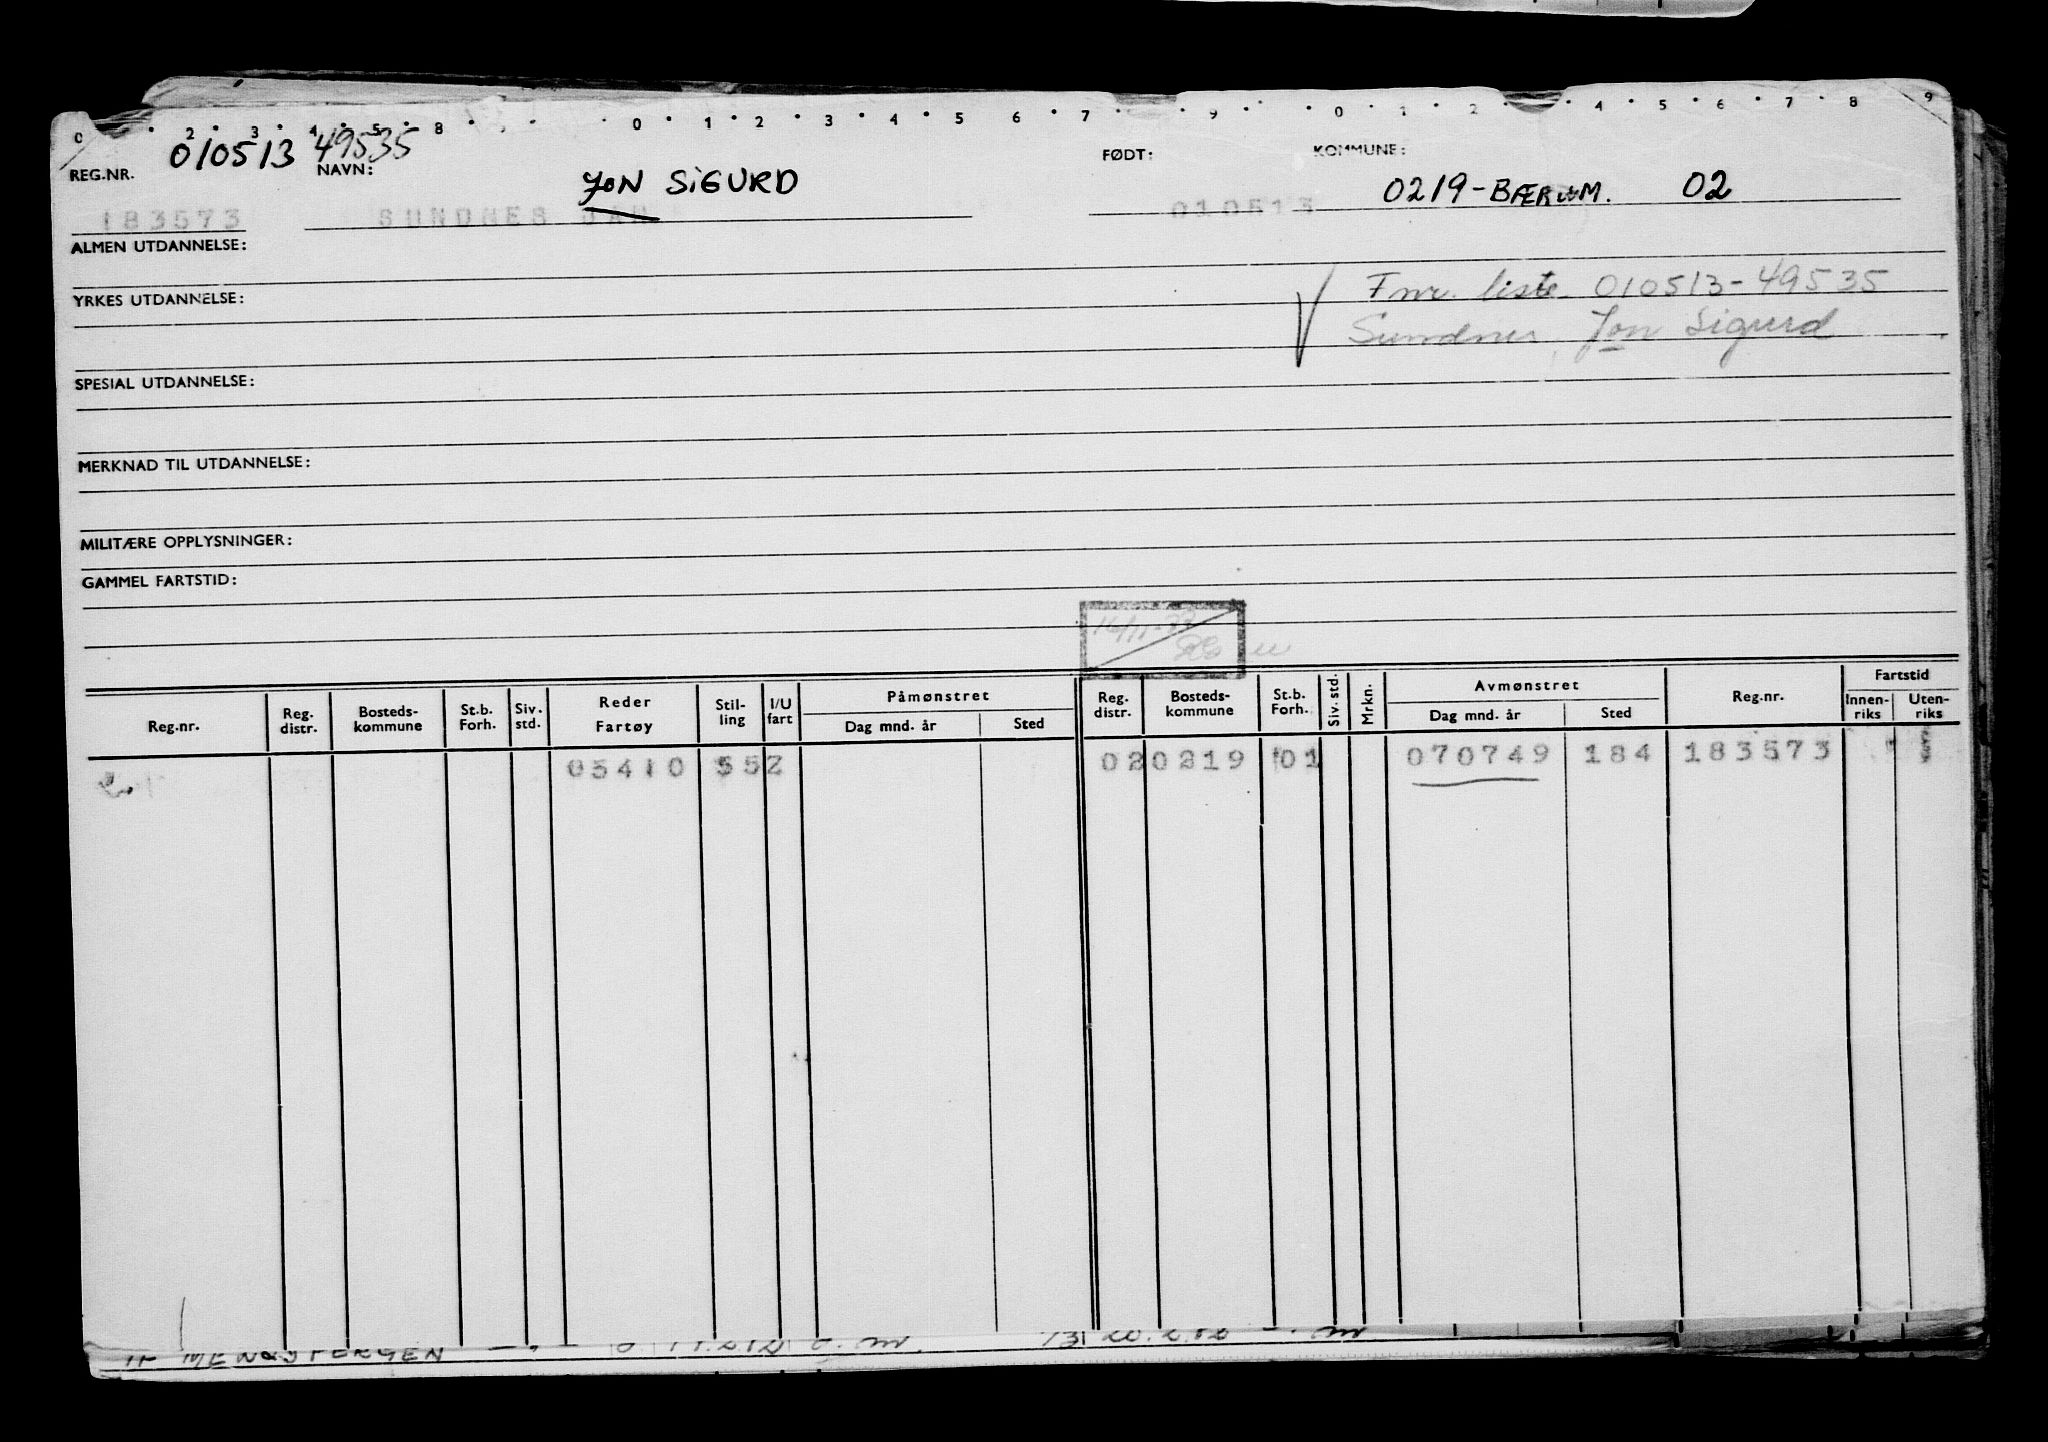 0 2 3 4 5 8 0 1 2 3 4 5 6 7 9 0 1 2 4 5 6 7 8 9
010513 49535
REG.NR. NAVN: FØDT: KOMMUNE:
JON SIGURD 0219-BÆRUM. 02
183573 SUNDNES JAN 010513
ALMEN UTDANNELSE:
Fnr. liste 010513-49535
YRKES UTDANNELSE:
Sundnes, Jon Sigurd
SPESIAL UTDANNELSE:
MERKNAD TIL UTDANNELSE:
MILITÆRE OPPLYSNINGER:
GAMMEL FARTSTID:
Reg.nr. Reg. distr. Bosteds-kommune St.b. Forh. Siv. std. Reder Fartøy Stil-ling I/U fart Påmønstret Dag mnd. år Sted Reg. distr. Bosteds-kommune St.b. Forh. Siv. std. Mrkn. Avmønstret Dag mnd. år Sted Reg.nr. Fartstid Innen-riks Uten-riks
03410 552 02 0219 01 070749 184 183573